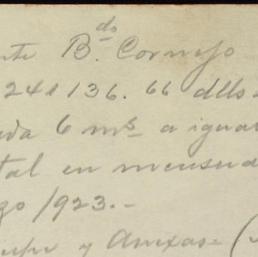 nte B.do Cornejo
24 e 136. 66 dlls
da 6 ms a igual
tal en mensua
zo 1923.-
y Anexas (